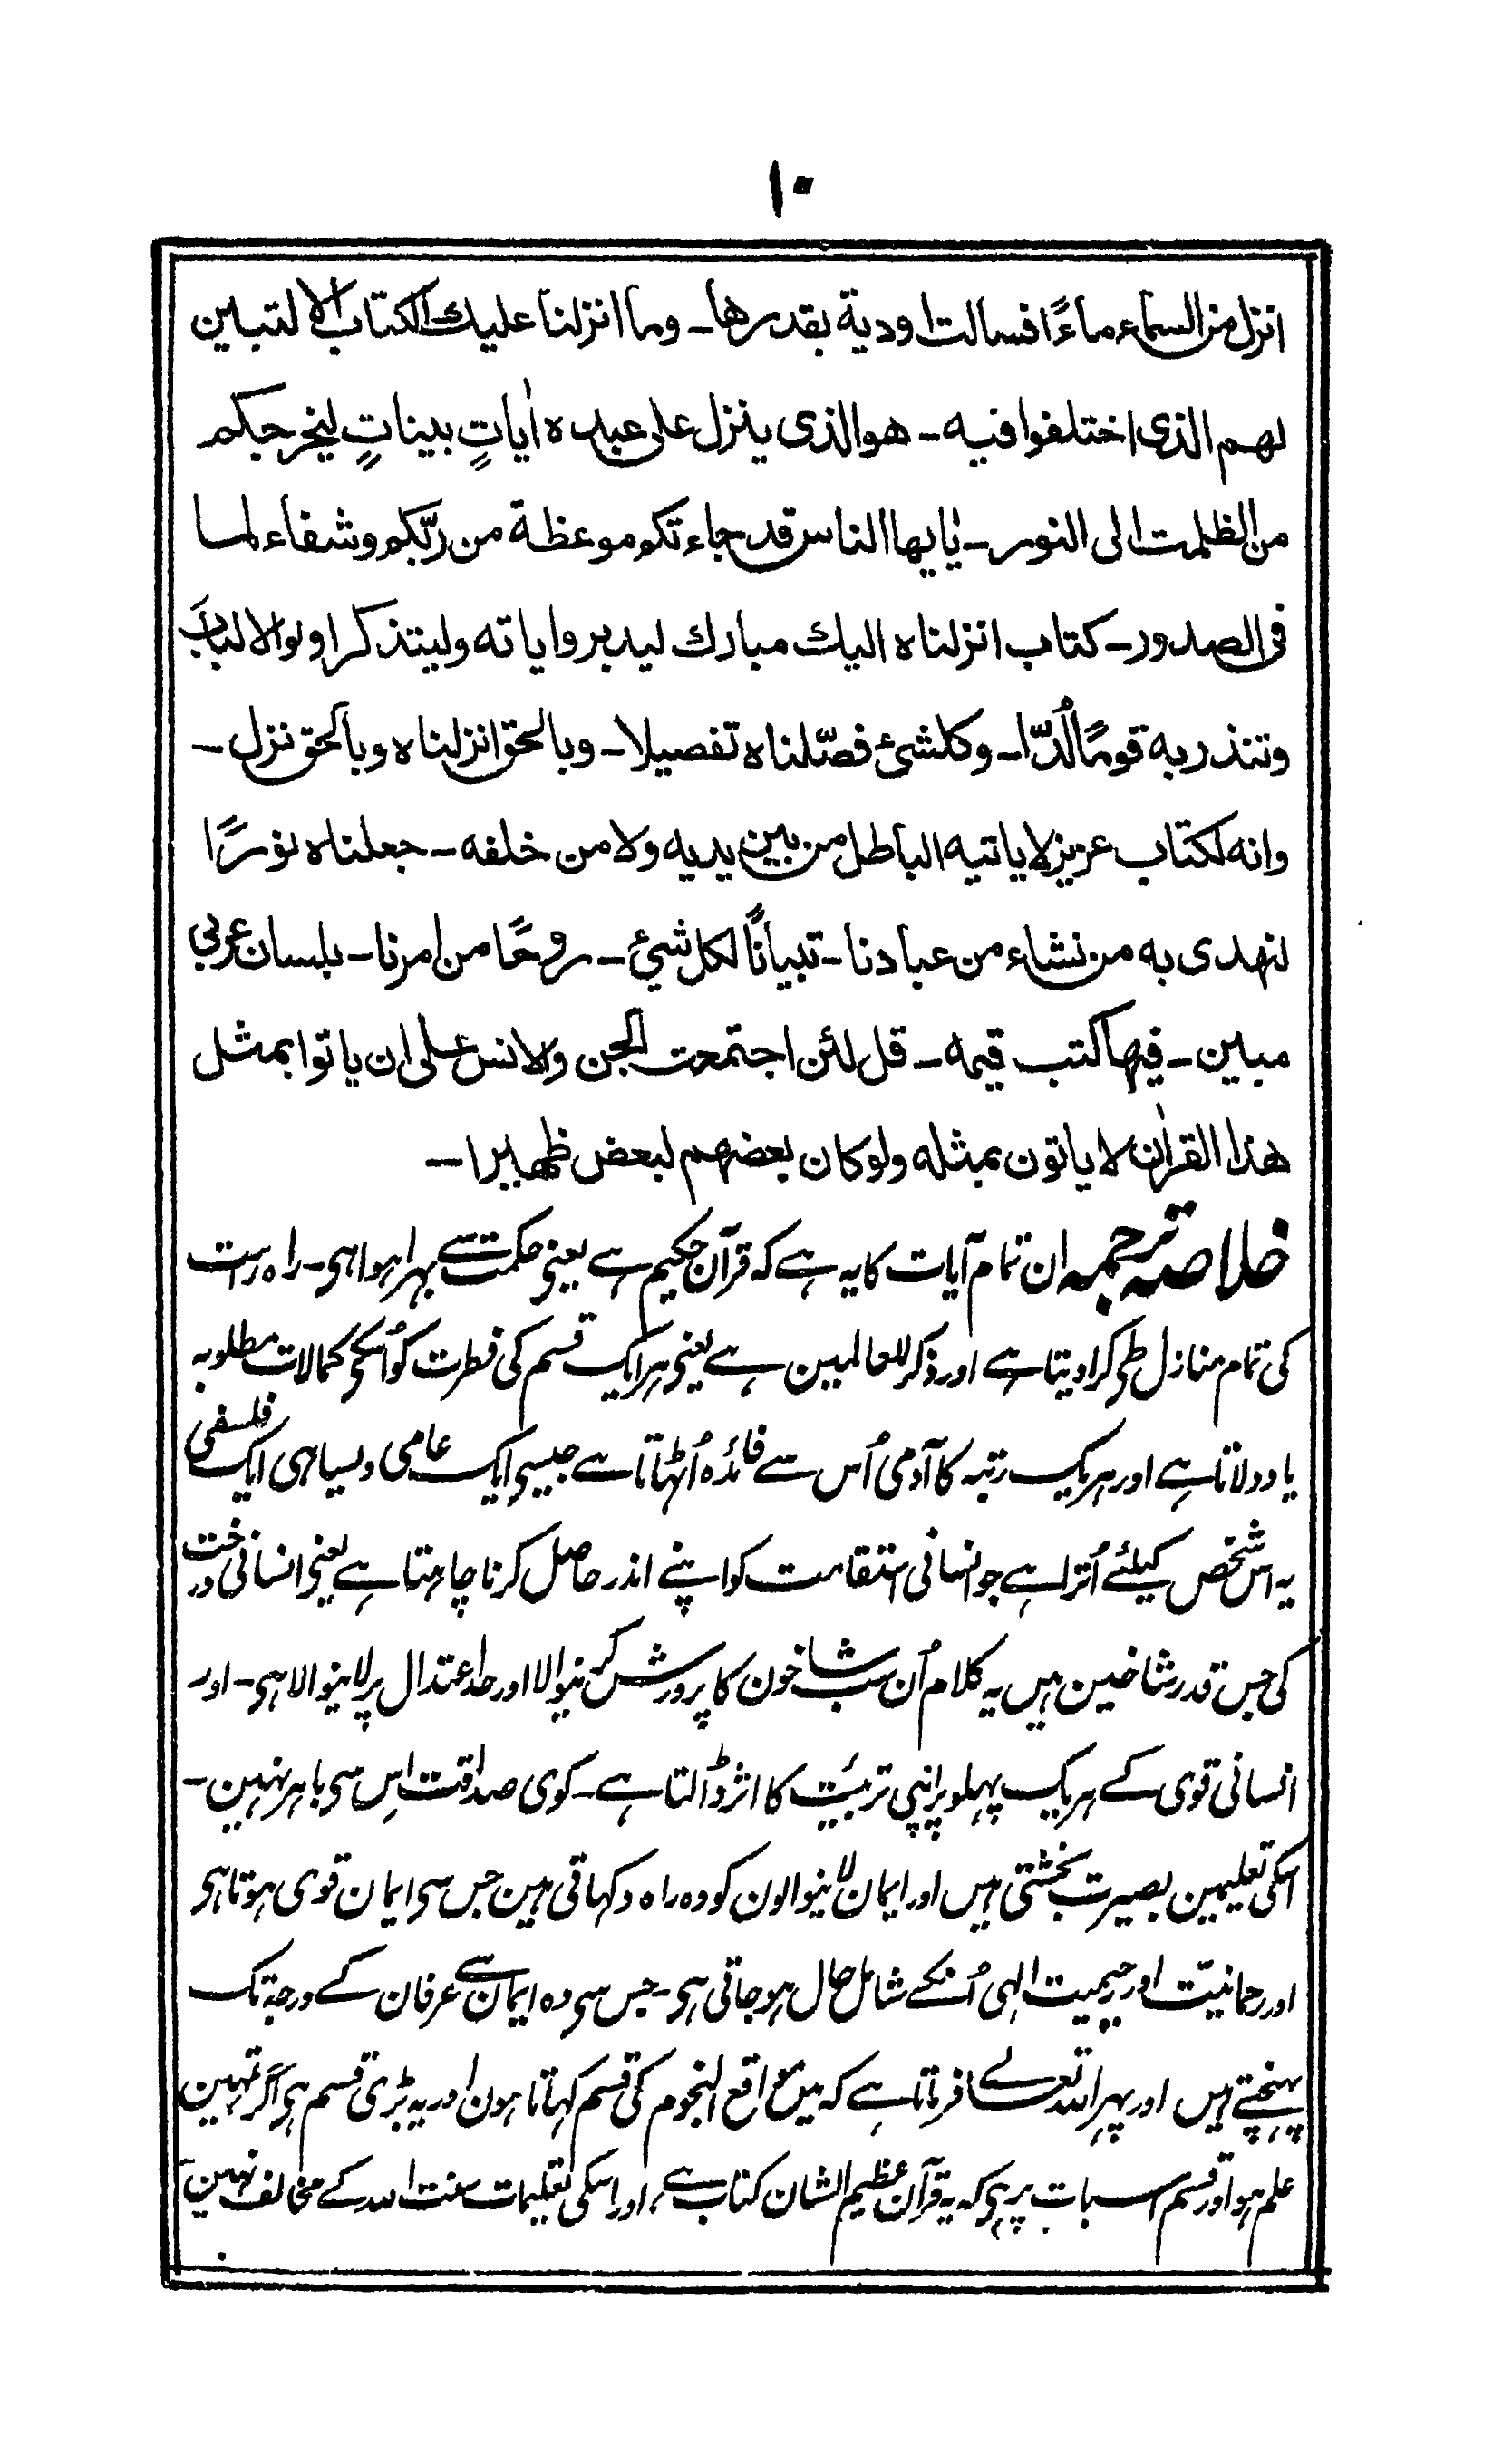 ۱۰
انزل من السماء ماءً افسالت اودية بقدرها ـ وما انزلنا عليك الكتاب الا لتبين
لهم الذى اختلفوا فيه ـ هو الذى ينزل على عبده اٰياتٍ بيناتٍ ليخرجكم
من الظلمت الى النور ـ يٰايها الناس قد جاءتكم موعظة من ربّكم وشفاء لما
فى الصدور ـ كتاب انزلناه اليك مبارك ليدبروا اياته وليتذكر اولوا الالباب
وتنذر به قومًا لُدّا ـ وكلشئ فصّلناه تفصيلا ـ وبالحق انزلناه وبالحق نزل ـ
وانه لكتاب عزيز لا ياتيه الباطل من بين يديه ولا من خلفه ـ جعلناه نورًا
نهدى به من نشاء من عبادنا ـ تبيانًا لكل شيء ـ روحًا من امرنا ـ بلسان عربي
مبين ـ فيها كتب قيمه ـ قل لئن اجتمعت الجن والانس على ان ياتوا بمثل
هذا القراٰن لا ياتون بمثله ولو كان بعضهم لبعض ظهيرا ـ
خلاصہ ترجمہ ان تمام آیات کا یہ ہے کہ قرآن حکیم ہے یعنی حکمت سے بہرا ہوا ہی ۔ راہ راست
کی تمام منازل طی کرا دیتا ہے اور ذکر للعالمین ہے یعنی ہر ایک قسم کی فطرت کو اُسکے کمالات مطلوبہ
یاد دلاتا ہے اور ہریک رتبہ کا آدمی اُس سے فائدہ اُٹہاتا ہے جیسے ایک عامی ویسا ہی ایک فلسفی
یہ اس شخص کیلئے اُترا ہے جو انسانی استقامت کو اپنے اندر حاصل کرنا چاہتا ہے یعنی انسانی درخت
کی جس قدر شاخین ہیں یہ کلام اُن سب شاخون کا پرورش کرنیوالا اور حد اعتدال پر لانیوالا ہی ۔ اور
انسانی قوی کے ہریک پہلو پر اپنی تربیّت کا اثر ڈالتا ہے ۔ کوی صداقت اِس سی باہر نہین ۔
اسکی تعلیمین بصیرت بخشتی ہیں اور ایمان لانیوالون کو وہ راہ دکہاتی ہین جس سی ایمان قوی ہوتا ہی
اور رحمانیّت اور رحیمیت الٰہی اُنکے شامل حال ہو جاتی ہی ۔ جس سی وہ ایمان سے عرفان کے درجہ تک
پہنچتے ہیں اور پہر اللہ تعالے فرماتا ہے کہ میں مواقع النجوم کی قسم کہاتا ہون اور یہ بڑی قسم ہی اگر تمہین
علم ہو اور قسم اسبات پر ہی کہ یہ قرآن عظیم الشان کتاب ہے، اور اسکی تعلیمات سنت اللہ کے مخالف نہین